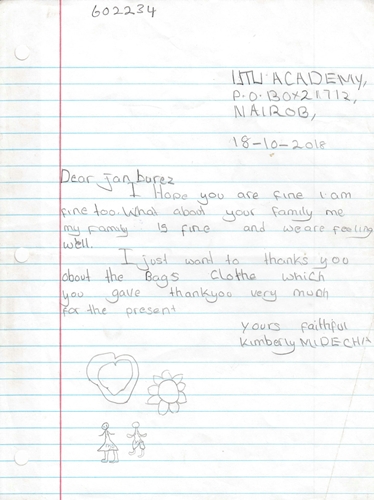 602234
ACADEMY,
P.O.BOX21712,
NAIROB,
18-10-2018
Dear jan burez
I Hope you are fine I am
fine too. What about your family me
my family is fine and we are feeling
well.
I just want to thanks you
about the Bags Clothe which
you gave thankyoo very much
for the present
yours faithful
Kimberly MIDECHIA